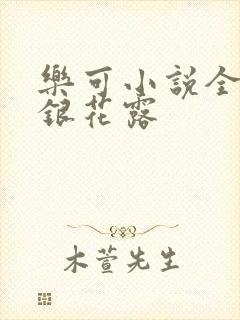 樂可小說全
銀花露
木萱先生